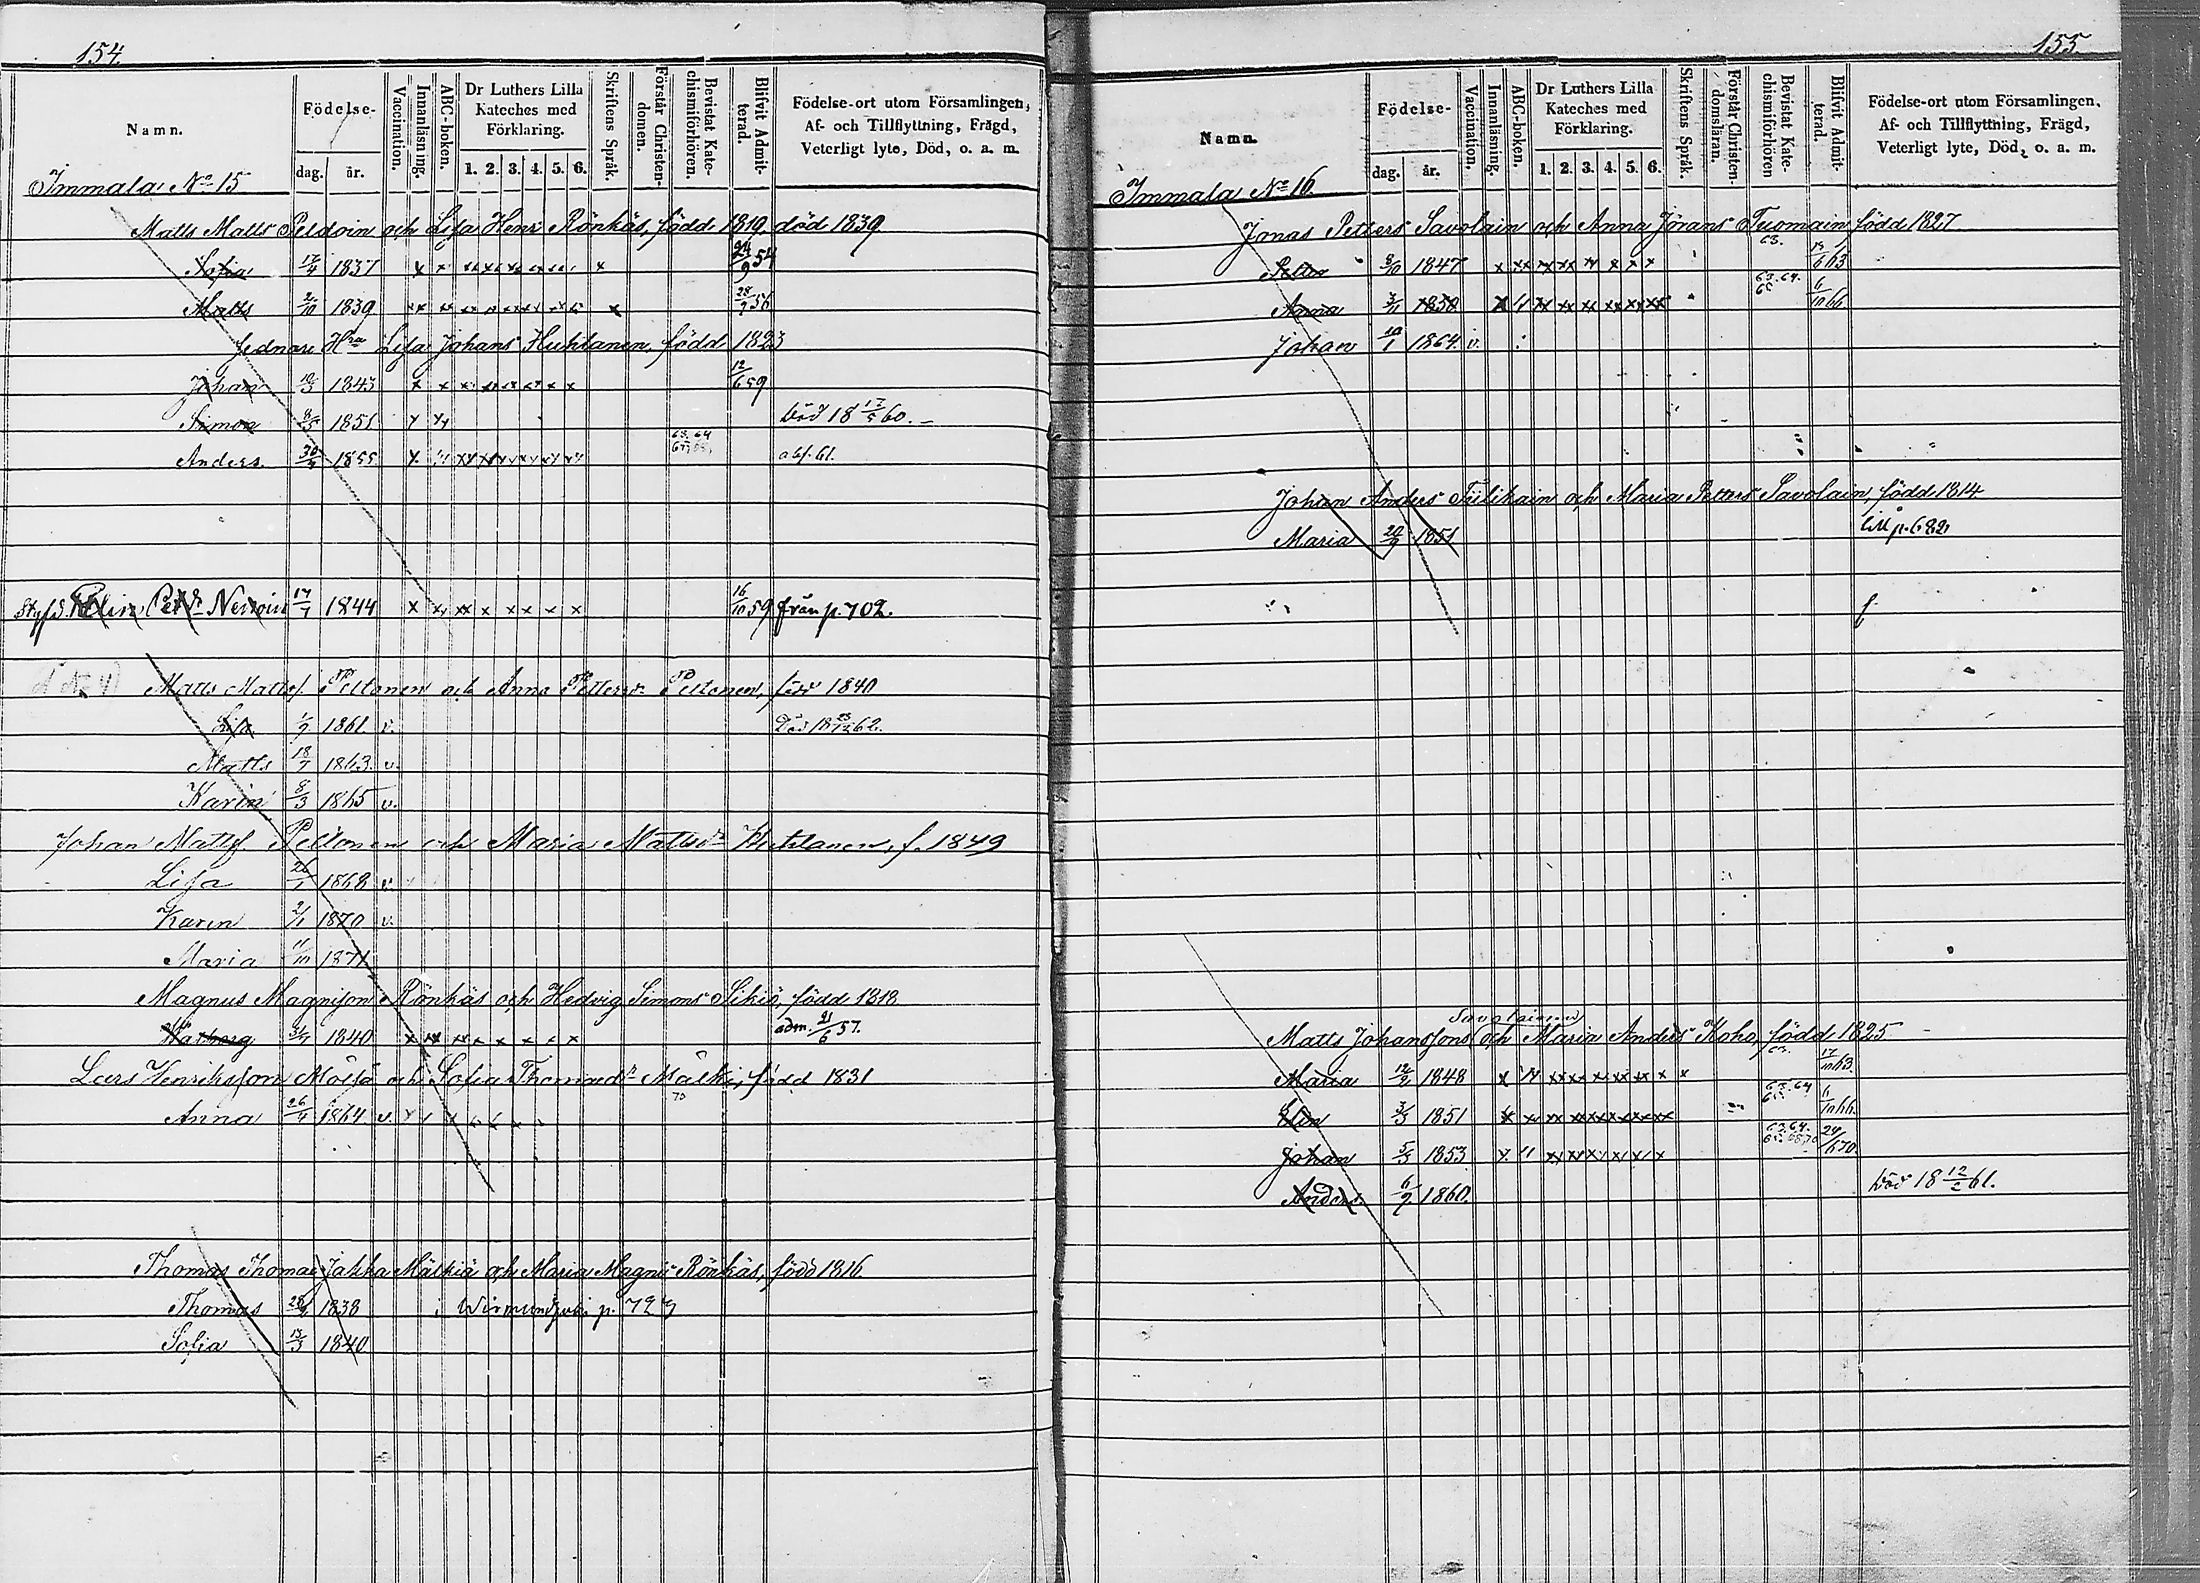 154.
Namn. Födelse- dag. år. Vaccination. Innanläsning. ABC-boken. Dr Luthers Lilla Kateches med Förklaring. 1. 2. 3. 4. 5. 6. Skriftens Språk. Förstår Christen-domen. Bevistat Kate-chismiförhören. Blifvit Admit-terad. Födelse-ort utom Församlingen, Af- och Tillflyttning, Frägd, Veterligt lyte, Död, o. a. m.
Immala No 15
Matts Matts Peldoin och Lisa Henr Rönkäs, född 1819 död 1839
Sofia 17/4 1837 24/9 54
Matts 2/10 1839 28/9 56
sednare Hru Lisa Johans Huhtanen, född 1823
Johan 10/3 1843 12/6 59
Simon 8/5 1851 Död 18 17/5 60.
Anders 30/4 1855 63. 64
Styfd. Elin Pet dr Nenoin 17/7 1844 16/10 59 från p. 702.
Matts Mattss. Peltonen och Anna Petters dr Peltonen, född 1840
Lisa 1/9 1861. v. Död 18 62.
Matts 18/7 1863. v.
Karin 8/3 1865 v.
Johan Mattss Peltonen och Maria Matts dr Huhtanen, f. 1849
Lisa 26/1 1868 v.
Karin 2/1 1870 v.
Maria 11/10 1871
Magnus Magnisson Rönkäs och Hedvig Simons Sikiö, född 1818
Warborg 31/7 1840 adm. 21/6 57.
Lars Henriksson Mölsä och Sofia Thomædr Mälkiä, född 1831
70
Anna 26/4 1864 v.
Thomas Thomæ Jakka Mälkiä och Maria Magnis Rönkäs, född 1816.
Thomas 28/9 1838 i p. 729
Sofia 13/3 1840
155.
Namn. Födelse- dag. år. Vaccination. Innanläsning. ABC-boken. Dr Luthers Lilla Kateches med Förklaring. 1. 2. 3. 4. 5. 6. Skriftens Språk. Förstår Christen-domsläran. Bevistat Kate-chismiförhören Blifvit Admit-terad. Födelse-ort utom Församlingen, Af- och Tillflyttning, Frägd, Veterligt lyte, Död, o. a. m.
Immala No 16.
Jonas Petters Savolain och Anna Jörans Tuomain född 1827
Petter 8/10 1847 63. 63
Anna 3/11 1850 63. 64. 65 6/10 66
Johan 10/1 1864. v.
Johan Anders Tulikain och Maria Petters Savolain, född 1814
Maria 20/9 1851 till p. 682
Savolainen
Matts Johanssons och Maria Anders Koho, född 1825
Maria 12/2 1848 63. 17/10 63.
Elin 3/3 1851 63. 64 65. 6/10 66.
Johan 5/3 1853 63. 64. 24/6 70.
Anders 6/9 1860. Död 18 12/2 61.